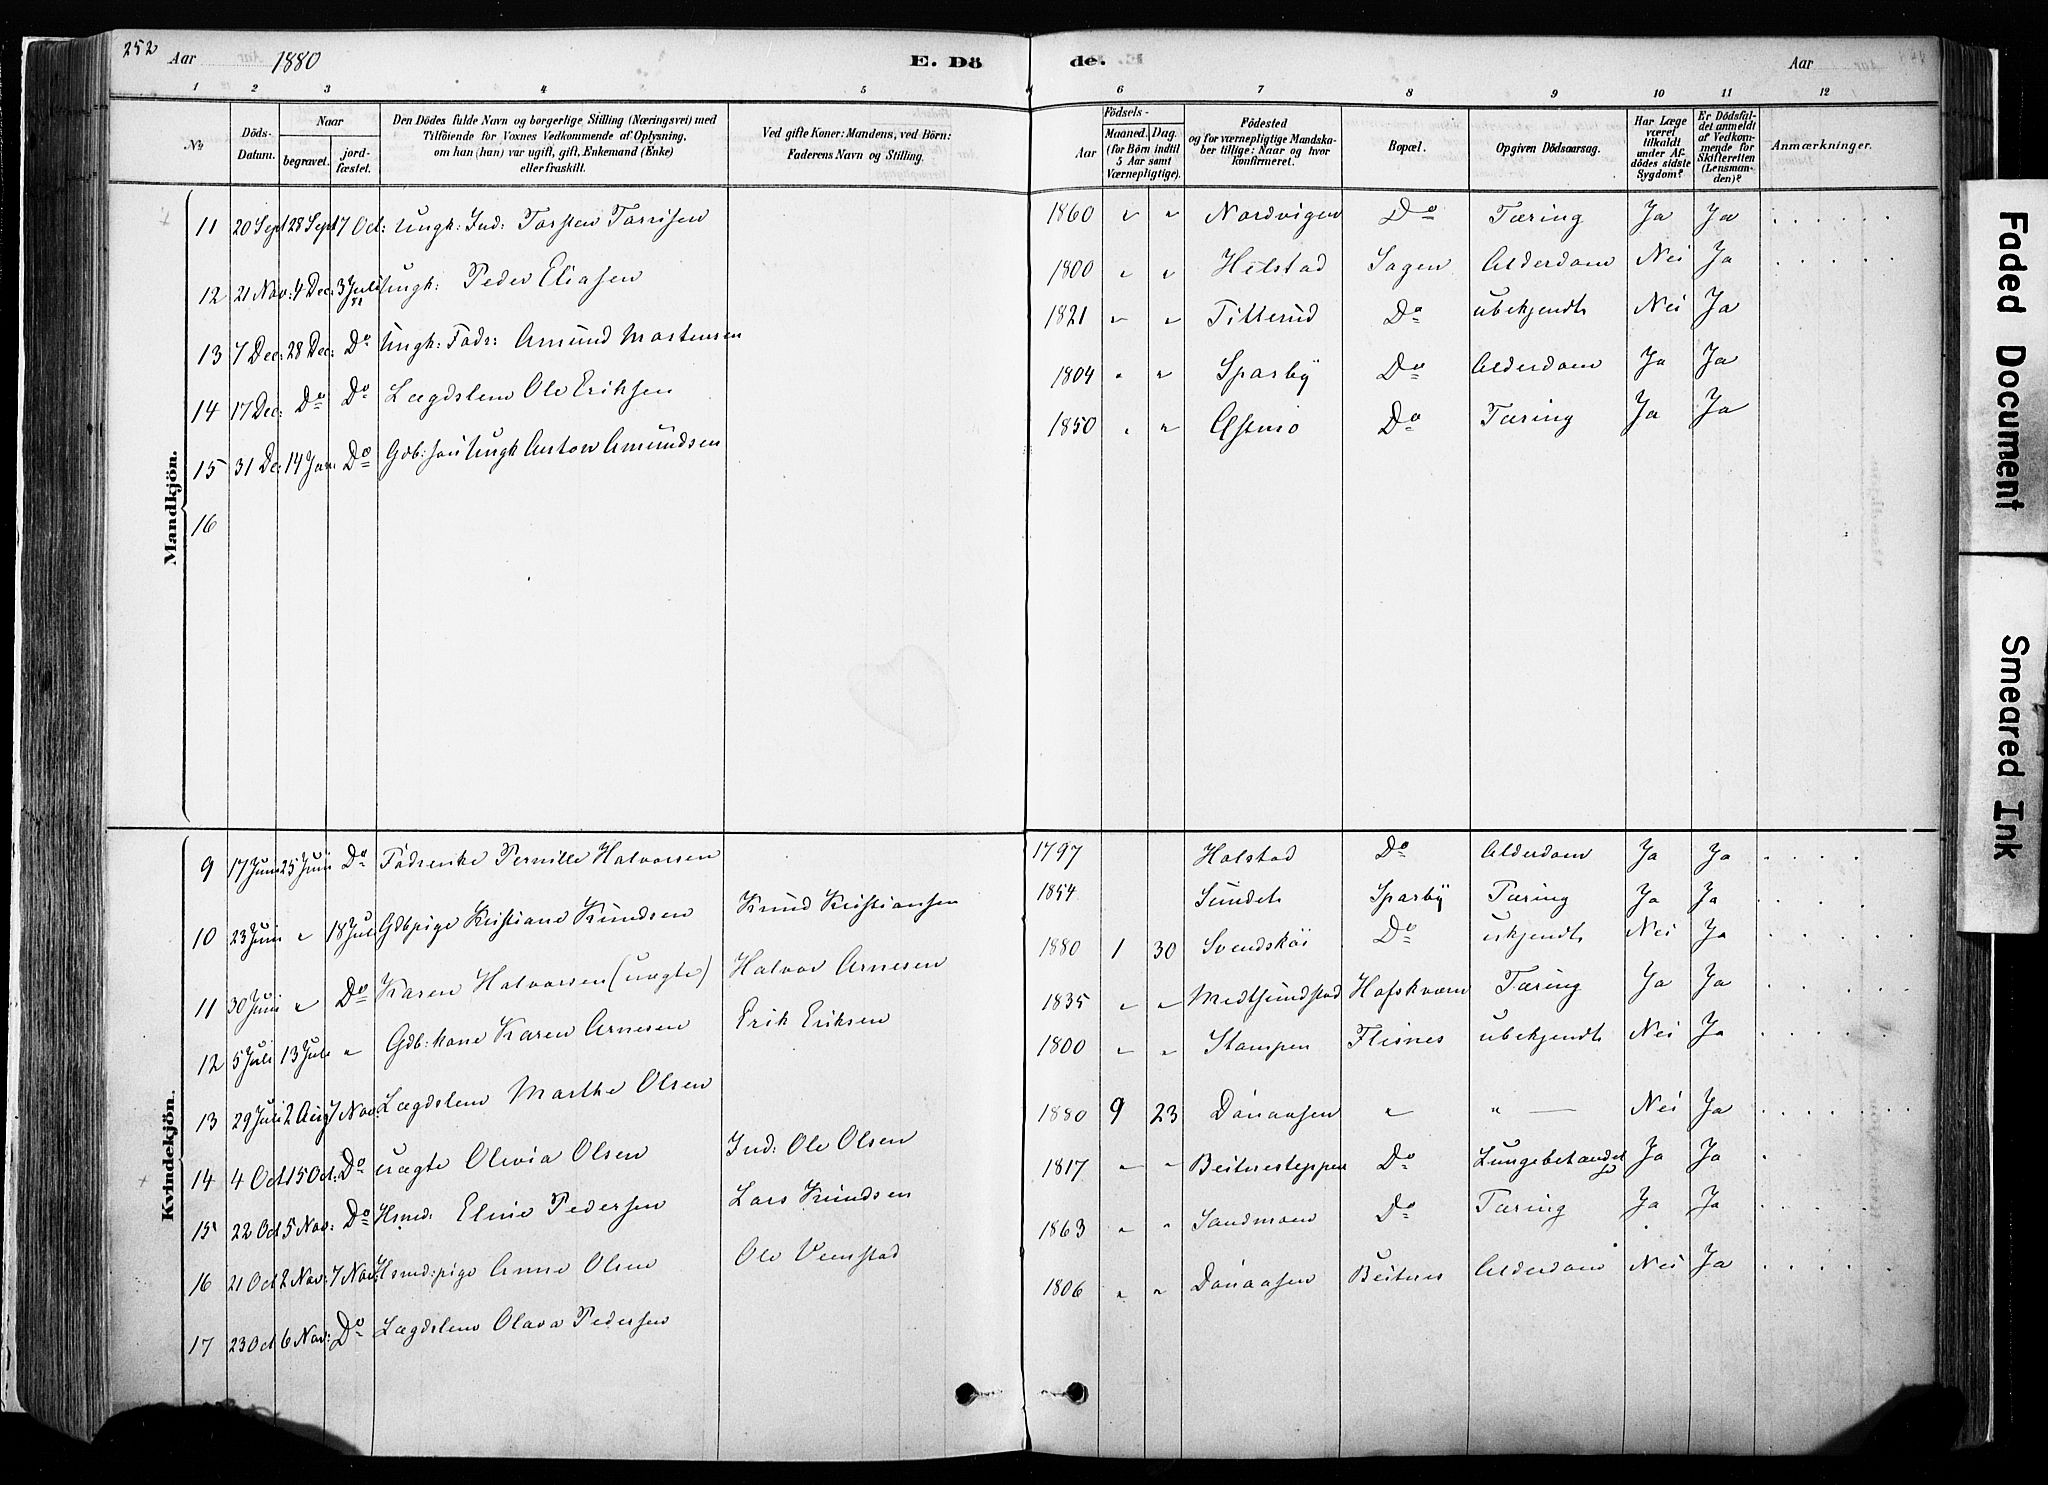 252 Aar 1880 E. Dö de. Aar
1 2 3 4 5 6 7 8 9 10 11 12
No. Döds-Datum. Naar begravet. jordfæstet. Den Dödes fulde Navn og borgerlige Stilling (Næringsvei) med Tilföiende for Voxnes Vedkommende af Oplysning, om han (hun) var ugift, gift, Enkemand (Enke) eller fraskilt. Ved gifte Koner: Mandens, ved Börn: Faderens Navn og Stilling. Födsels- Aar Maaned. Dag. (for Börn indtil 5 Aar samt Værnepligtige). Födested og for værnepligtige Mandskaber tillige: Naar og hvor konfirmeret. Bopæl. Opgiven Dödsaarsag. Har Læge været tilkaldt under Afdödes sidste Sygdom? Er Dödsfaldet anmeldt af Vedkommende for Skifteretten (Lensmanden)? Anmærkninger.
Mandkjön.
11 20 Sept 28 Sept 17 Oct: Ungk: Ind: Torsten Torrisen 1860 " " Nordvigen Do Tæring Ja Ja
12 21 Nov: 4 Dec: 3 Juli Ungk: Peder Eliasen 1800 " " Helstad Sagen Alderdom Nei Ja
13 7 Dec: 28 Dec: Do Ungk: Föds: Amund Mortensen 1821 " " Titterud Do ubekjendt Nei Ja
14 17 Dec: Do Do Lægdslem Ole Eriksen 1804 " " Sparby Do Alderdom Ja Ja
15 31 De: 14 Jan: Do Gdb: sön Ungk Anton Amundsen 1850 " " Do Tæring Ja Ja
16
Kvindekjön.
9 17 Juni 25 Juni Do Födsenke Pernille Halvorsen 1797 Holstad Do Alderdom Ja Ja
10 23 Juni " 18 Jul Gdbpige Kristiane Knudsen Knud Kristiansen 1854 Sundet Sparby Tæring Ja Ja
11 30 Juni " Do Karen Halvorsen (uægte) Halvor Arnesen 1880 1 30 Svendsköi Do Nei Ja
12 5 Juli 13 Juli " Gdb: kone Karen Arnesen Erik Eriksen 1835 " " Medtsundstad Hofskværn Tæring Ja Ja
13 29 Juli 2 Aug 7 Nov: Lægdslem Marthe Olsen 1800 " " Stampen Flisnes ubekjendt Nei Ja
14 4 Oct 15 Oct: Do uægte Olivia Olsen Ind: Ole Olsen 1880 9 23 Dönaasen " " Nei Ja
15 22 Oct 5 Nov: Do Hsmd: Eline Pedersen Lars Knudsen 1817 " " Beitnesteppen Do Ja Ja
16 21 Oct 2 Nov: 7 Nov: Hsmd: pige Anne Olsen Ole Veenstad 1863 " " Sandmoen Do Tæring Ja Ja
17 23 Oct 6 Nov: Do Lægdslem Olava Pedersen 1806 " " Dönaasen Beitnes Alderdom Nei Ja
Faded Document
Smeared Ink